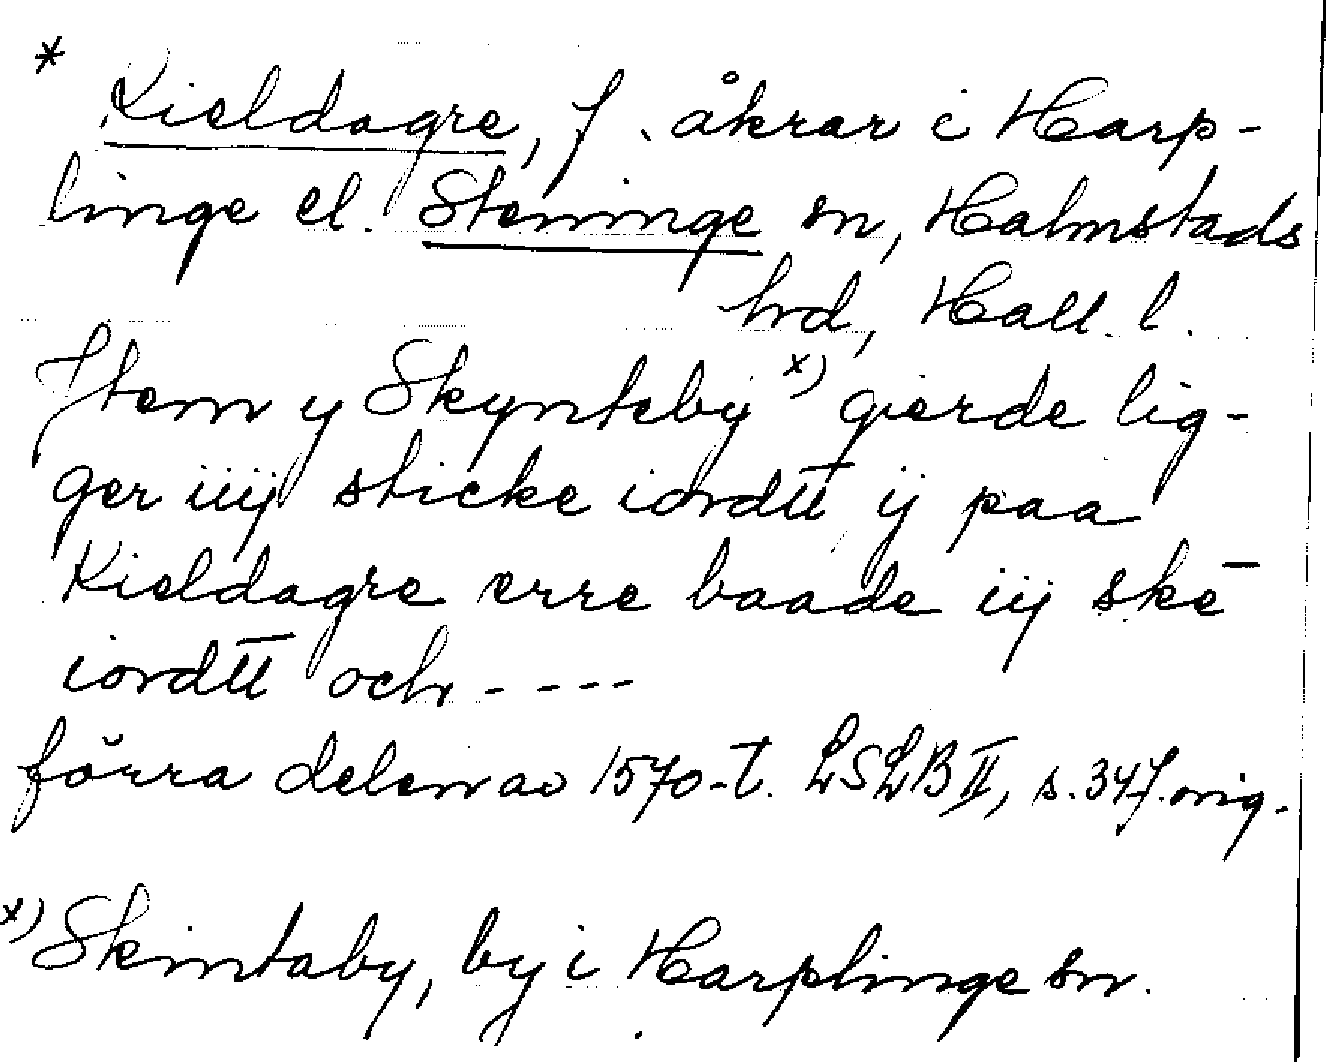 * Kieldagre, f. åkrar i Harp-
linge el. Steninge sn, Halmstads
hrd, Hall. l.
Jtem y Skynteby x) gierde lig-
ger iiij sticke iordtt ij paa
Kieldagre erre baade iij skē
iordtt och - - - -
förra delen av 1570-t. LSLB II, s. 347. orig.
x) Skintaby, by i Harplinge sn.